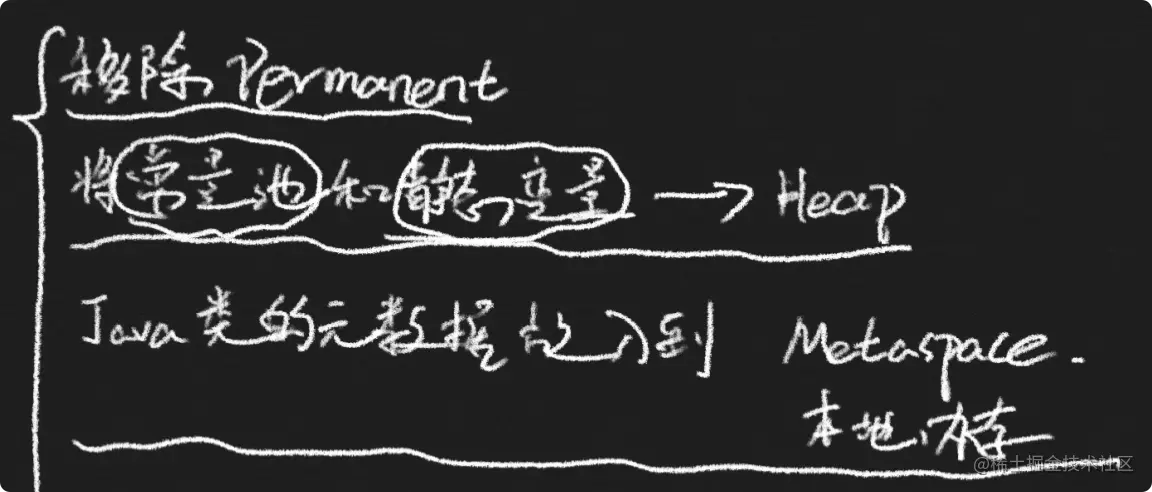 移除 Permanent
将常量池和静态变量 → Heap
Java类的元数据放入到 Metaspace.
本地内存
@稀土掘金技术社区